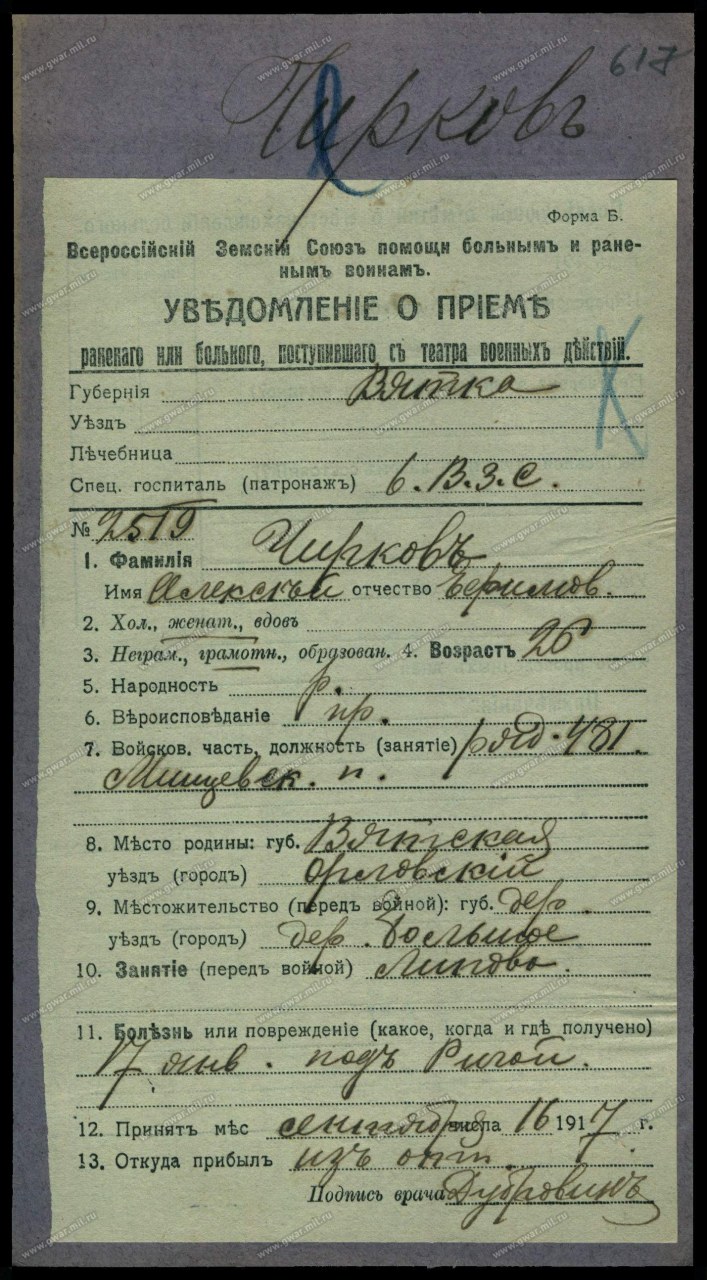 617
Чирковъ
Форма Б.
Всероссійскій Земскій Союзъ помощи больнымъ и ране-
нымъ воинамъ.
УВѢДОМЛЕНІЕ О ПРІЕМѢ
раненаго или больного, поступившаго съ театра военныхъ дѣйствій.
Губернія Вятка
Уѣздъ
Лѣчебница
Спец. госпиталь (патронажъ) 6. В.З.С.
№ 2519
1. Фамилія Чирковъ
Имя Алексѣй отчество Ефимов.
2. Хол., женат., вдовъ
3. Неграм., грамотн., образован. 4. Возрастъ 26
5. Народность р.
6. Вѣроисповѣданіе пр.
7. Войсков. часть, должность (занятіе) ряд. 481.
Мещевск. п.
8. Мѣсто родины: губ. Вятская
уѣздъ (городъ) Орловскій
9. Мѣстожительство (передъ войной): губ. дер.
уѣздъ (городъ) дер. Большое
10. Занятіе (передъ войной) Липово.
11. Болѣзнь или поврежденіе (какое, когда и гдѣ получено)
17 янв. подъ Ригой.
12. Принятъ мѣс сентября числа 16 1917 г.
13. Откуда прибылъ изъ отп.
Подпись врача Дубровинъ
www.gwar.mil.ru